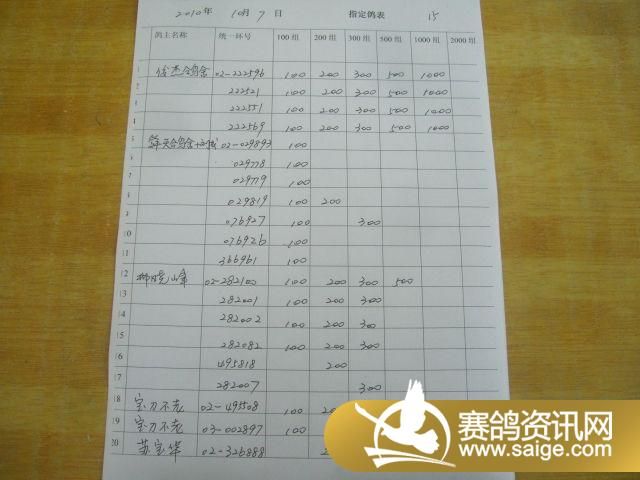 2010年 10月 7 日 指定鸽表 15
鸽主名称 统一环号 100 组 200 组 300 组 500 组 1000 组 2000 组
1 俊杰鸽舍 02-222596 100 200 300 500 1000
2 222521 100 200 300 500 1000
3 222551 100 200 300 500 1000
4 222569 100 200 300 500 1000
5 02-029893 100
6 029778 100
7 029779 100
8 029819 100 200
9 076927 100 300
10 076926 100
11 366961 100
12 柳晓山 02-282100 100 200 300 500
13 282001 100 200 300
14 282002 100 200 300
15 282082 100 200 300
16 495818 200
17 282007 300
18 宝刀不老 02-493508 100
19 宝刀不老 03-002897 100
20 苏宝华 02-326888
赛鸽资讯网
www.saige.com